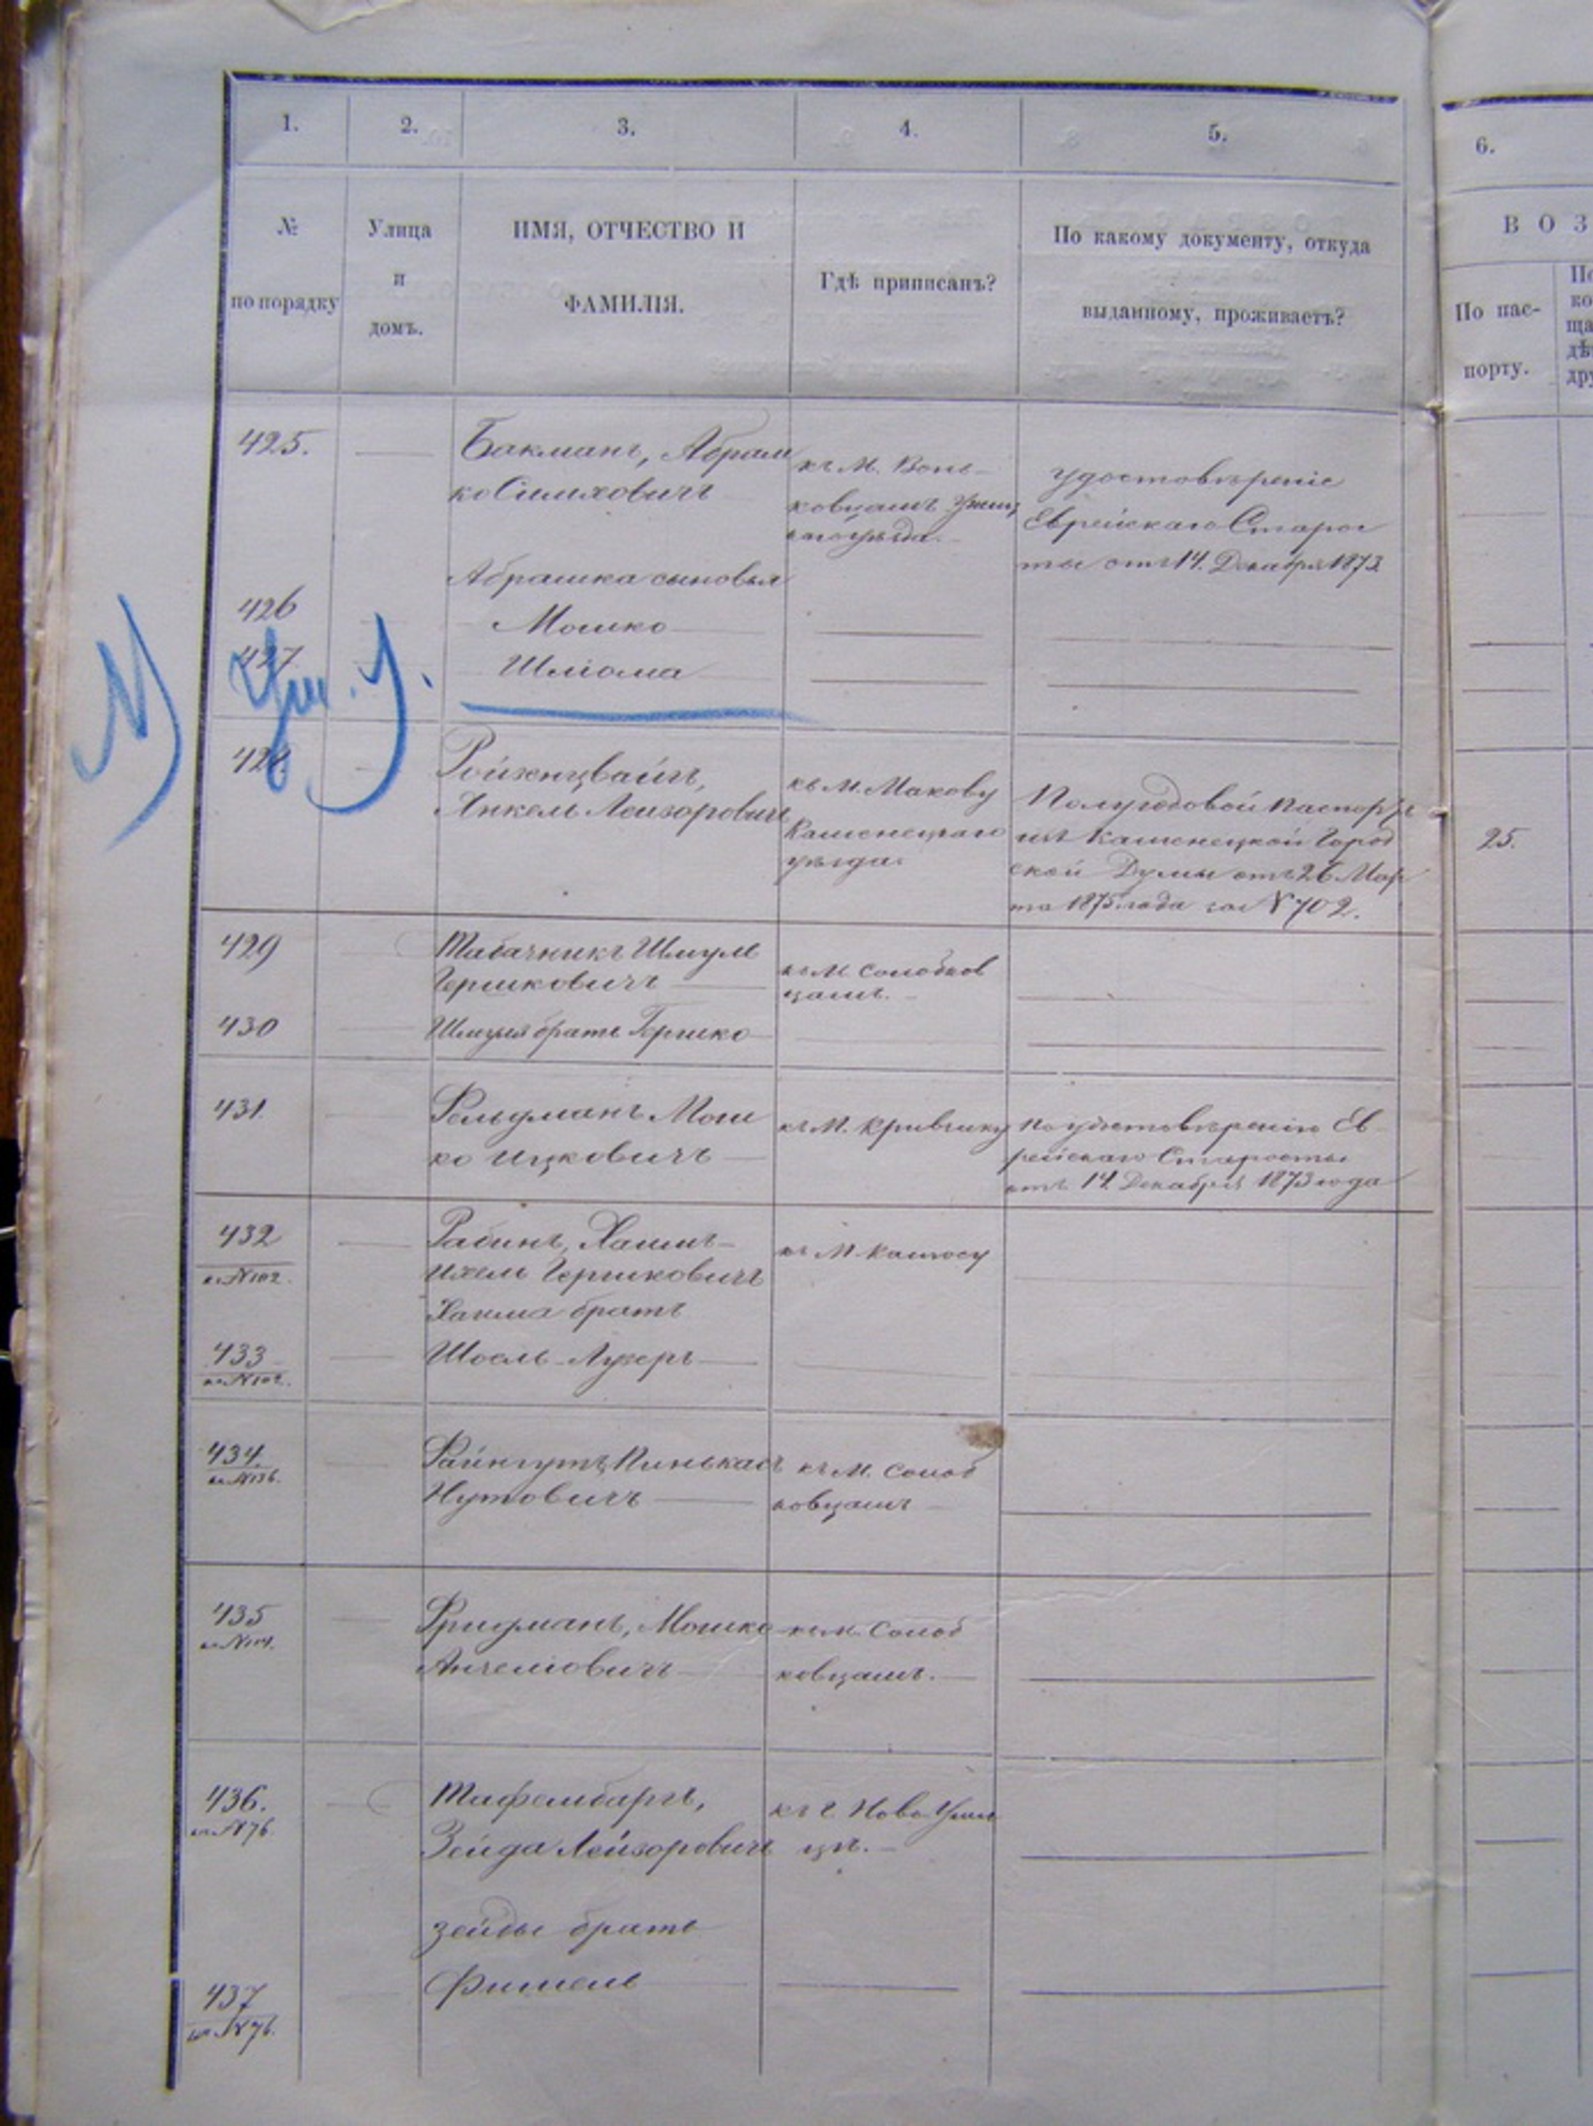 1. 2. 3. 4. 5. 6.
№ по порядку
Улица и домъ.
ИМЯ, ОТЧЕСТВО И ФАМИЛІЯ.
Гдѣ приписанъ?
По какому документу, откуда
выданному, проживаетъ?
В О З
По пас-
порту.
425. Бакманъ, Абрам
ко Симховичъ
къ М. Вонь-
ковцамъ Ушиц
каго уѣзда.
удостовѣреніе
Еврейскаго Старос
ты отъ 14. Декабря 1873
Абрашка сыновья
426 Мошко
427 Шліома
Уш. у.
428. Ройзенцвайгъ,
Янкель Лейзоровичъ
къ М. Макову
Каменецкаго
уѣзда.
Полугодовой паспортъ
изъ Каменецкой Город
ской Думы отъ 26 Мар
та 1875 года за № 702.
25.
429 Табачникъ Шмуль
Гершковичъ
къ М. Солобков
цамъ.
430 Шмуля братъ Гершко
431 Фельдманъ Мош
ко Ицковичъ
къ М. Кривчику
По удостовѣренію Ев
рейскаго Старосты
отъ 14 Декабря 1873 года
432 Рабинъ, Хаимъ-
Ихель Гершковичъ
къ М. Калюсу
№ 102.
Хаима братъ
433 Шоель-Лузеръ
№ 102.
434. Файнгутъ, Пинькасъ
Нутовичъ
къ М. Солоб
ковцамъ
№ 136.
435 Фридманъ, Мошко
Анчеліовичъ
къ М. Солоб
ковцамъ.
436. Тафельбаргъ,
Зейда Лейзоровичъ
къ г. Ново Уши
цѣ.
№ 76.
Зейды братъ
437 Фишель
№ 76.